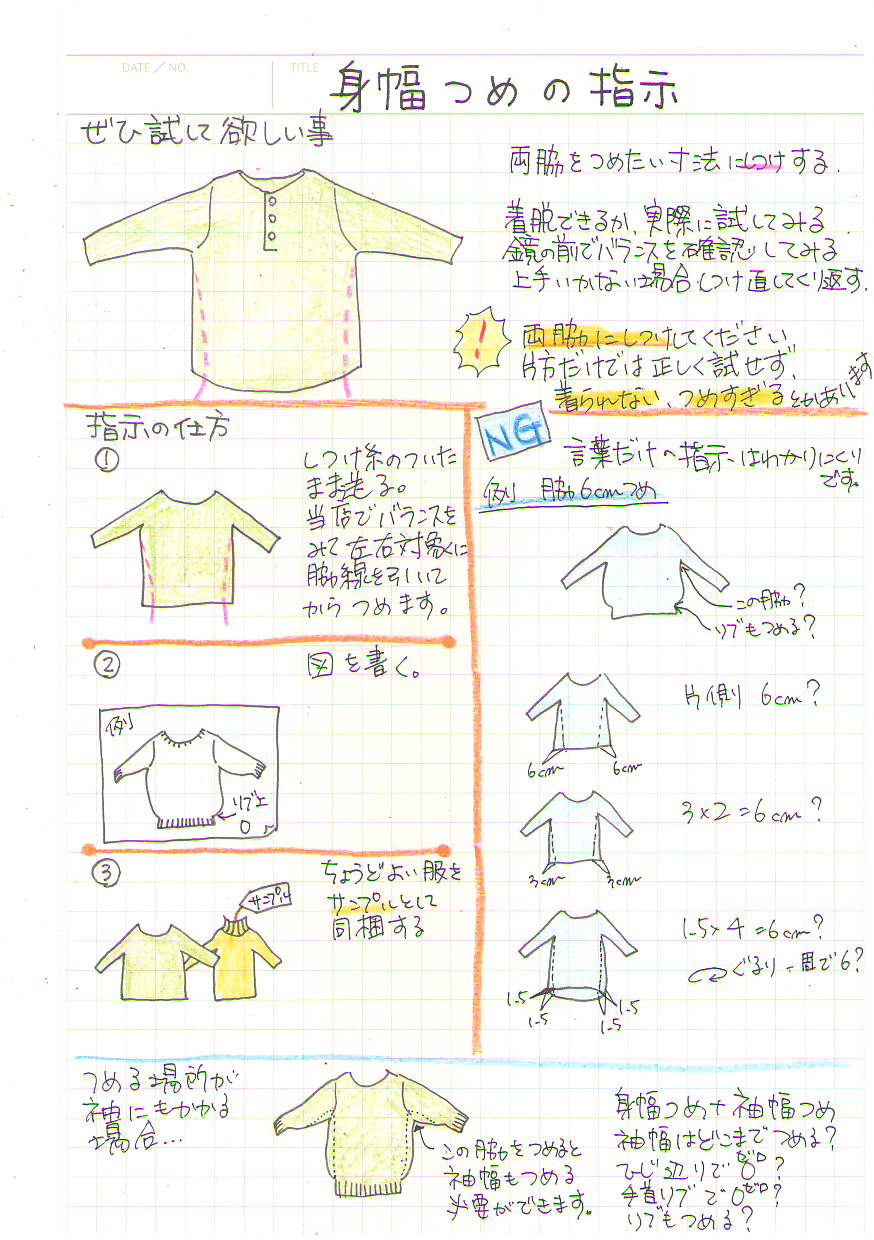 DATE / NO.
TITLE
身幅つめの指示
ぜひ試して欲しい事
両脇をつめたい寸法にしつけする.
着脱できるか、実際に試してみる.
鏡の前でバランスを確認してみる
上手いかない場合しつけ直してくり返す.
!
両脇にしつけしてください。
片方だけでは正しく試せず、
着られない、つめすぎるとかあります
指示の仕方
①
しつけ糸のついた
まま送る。
当店でバランスを
みて左右対象に
脇線を引いて
からつめます。
②
図を書く。
例
リブ上
0
③
ちょうどよい服を
サンプルとして
同梱する
サンプル
NG
言葉だけの指示はわかりにくい
です。
例 脇6cmつめ
この脇?
リブもつめる?
片側 6cm?
6cm
6cm
3×2=6cm?
3cm
3cm
1.5×4=6cm?
ぐるり一周で6?
1.5
1.5
1.5
1.5
つめる場所が
袖にもかかる
場合...
この脇をつめると
袖幅もつめる
必要ができます。
身幅つめ+袖幅つめ
袖幅はどこまでつめる?
ひじ辺りで0ゼロ?
手首リブで0ゼロ?
リブもつめる?